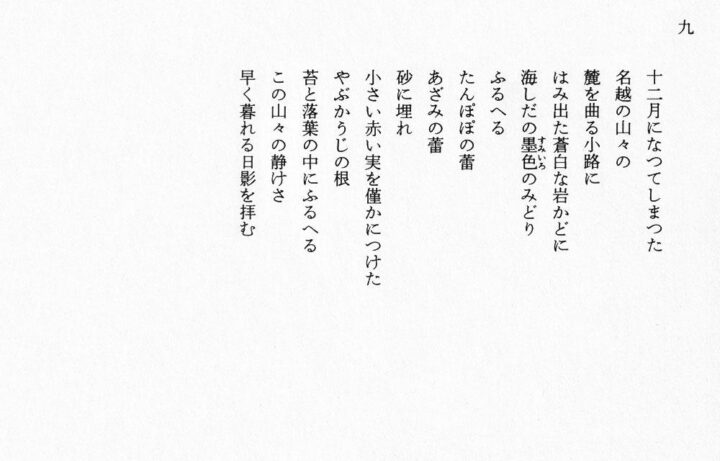 九
十二月になつてしまつた
名越の山々の
麓を曲る小路に
はみ出た蒼白な岩かどに
海しだの墨色のみどり
すみいろ
ふるへる
たんぽぽの蕾
あざみの蕾
砂に埋れ
小さい赤い実を僅かにつけた
やぶかうじの根
苔と落葉の中にふるへる
この山々の静けさ
早く暮れる日影を拝む